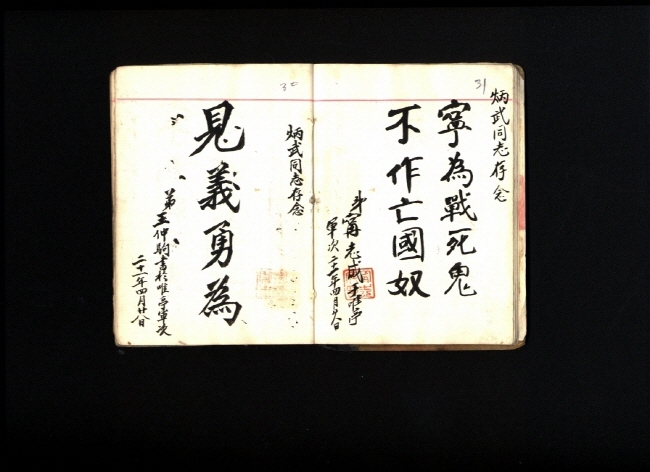 31
炳武同志存念
寧為戰死鬼
不作亡國奴
弟甯志成于唯亭
軍次 二十一年四月廿八日
30
炳武同志存念
見義勇為
第王仲駒書於唯亭軍次
二十一年四月廿八日